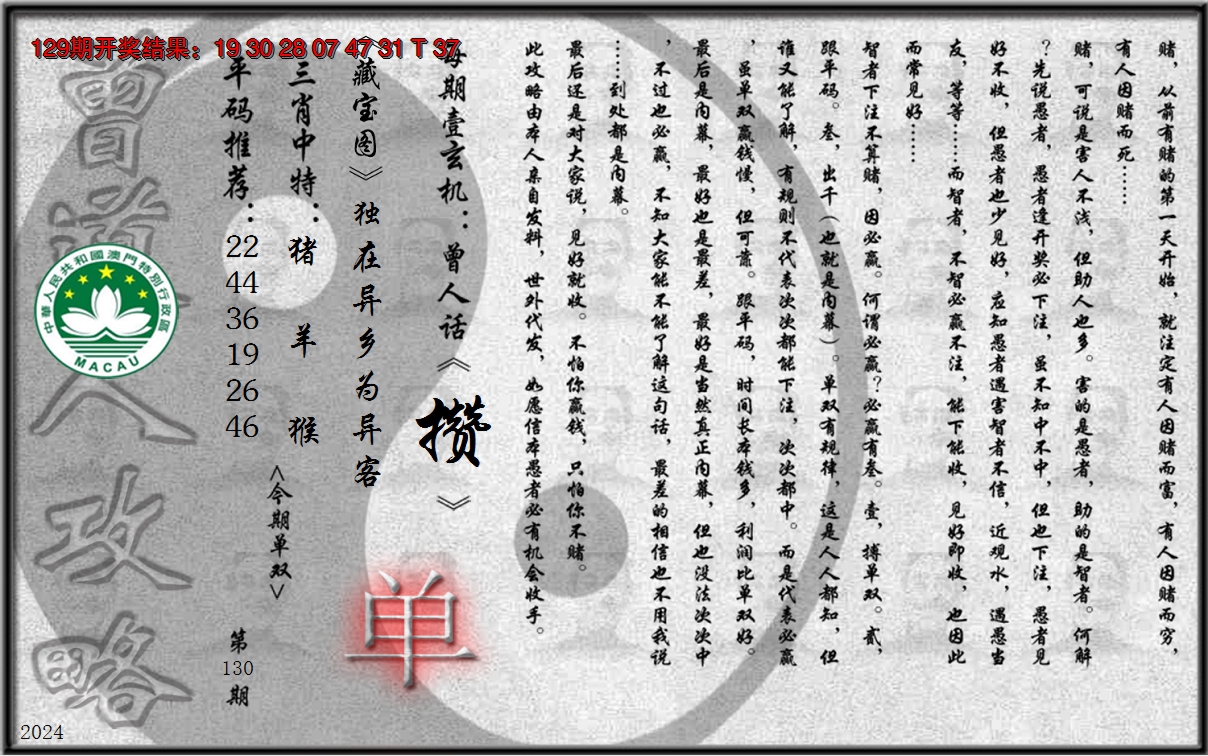 129期开奖结果：19 30 28 07 47 31 T 37
赌，从前有赌的第一天开始，就注定有人因赌而富，有人因赌而穷，
有人因赌而死……
赌，可说是害人不浅，但助人也多。害的是愚者，助的是智者。何解
？先说愚者，愚者逢开奖必下注，虽不知中不中，但也下注，愚者见
好不收，但愚者也少见好，应知愚者遇害智者不信，近观水，遇愚当
友，等等……而智者，不智必赢不注，能下能收，见好即收，也因此
而常见好……
智者下注不算赌，因必赢。何谓必赢？必赢有叁。壹，搏单双。贰，
跟平码。叁，出千（也就是内幕）。单双有规律，这是人人都知，但
谁又能了解，有规则不代表次次都能下注，次次都中。而是代表必赢
，虽单双赢钱慢，但可靠。跟平码，时间长本钱多，利润比单双好。
最后是内幕，最好也是最差，最好是当然真正内幕，但也没法次次中
，不过也必赢，不知大家能不能了解这句话，最差的相信也不用我说
……到处都是内幕。
最后还是对大家说，见好就收。不怕你赢钱，只怕你不赌。
此攻略由本人亲自发料，世外代发，如愿信本愚者必有机会收手。
每期壹玄机：曾人话《攒》
《藏宝图》独在异乡为异客
单
三肖中特：猪 羊 猴
<今期单双>
平码推荐：22 44 36 19 26 46
第130期
曾道人攻略
中華人民共和國澳門特別行政區
MACAU
2024